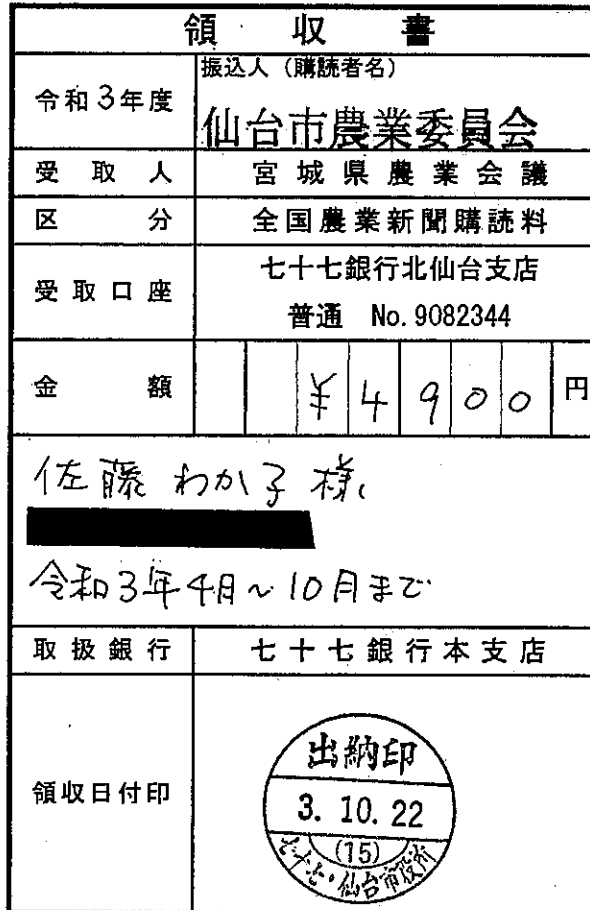 領収書
令和3年度
振込人（購読者名）
仙台市農業委員会
受取人 宮城県農業会議
区分 全国農業新聞購読料
受取口座 七十七銀行北仙台支店
普通 No. 9082344
金額 ¥4900円
佐藤わか子様
令和3年4月~10月まで
取扱銀行 七十七銀行本支店
領収日付印
出納印
3. 10. 22
(15)
七十七・仙台市役所